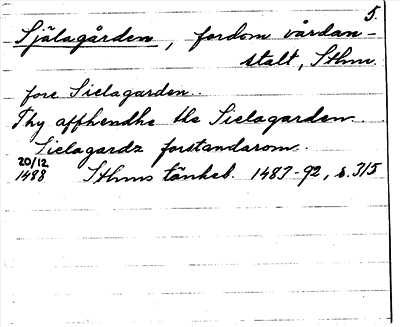 5.
Själagården, fordom vårdan-
stalt, Sthm.
fore Sielagarden.
Thy affhendhe the Sielagarden.
Sielagardz forstandarom.
20/12
1488 Sthms tänkeb. 1487-92, s. 315